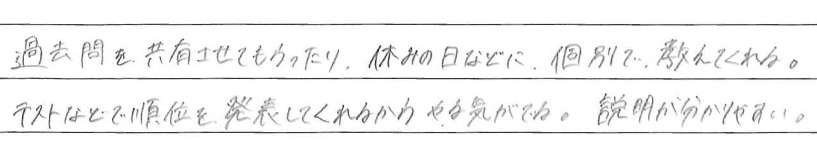 過去問を共有させてもらったり、休みの日などに、個別で、教えてくれる。
テストなどで順位を発表してくれるからやる気がでる。説明が分かりやすい。